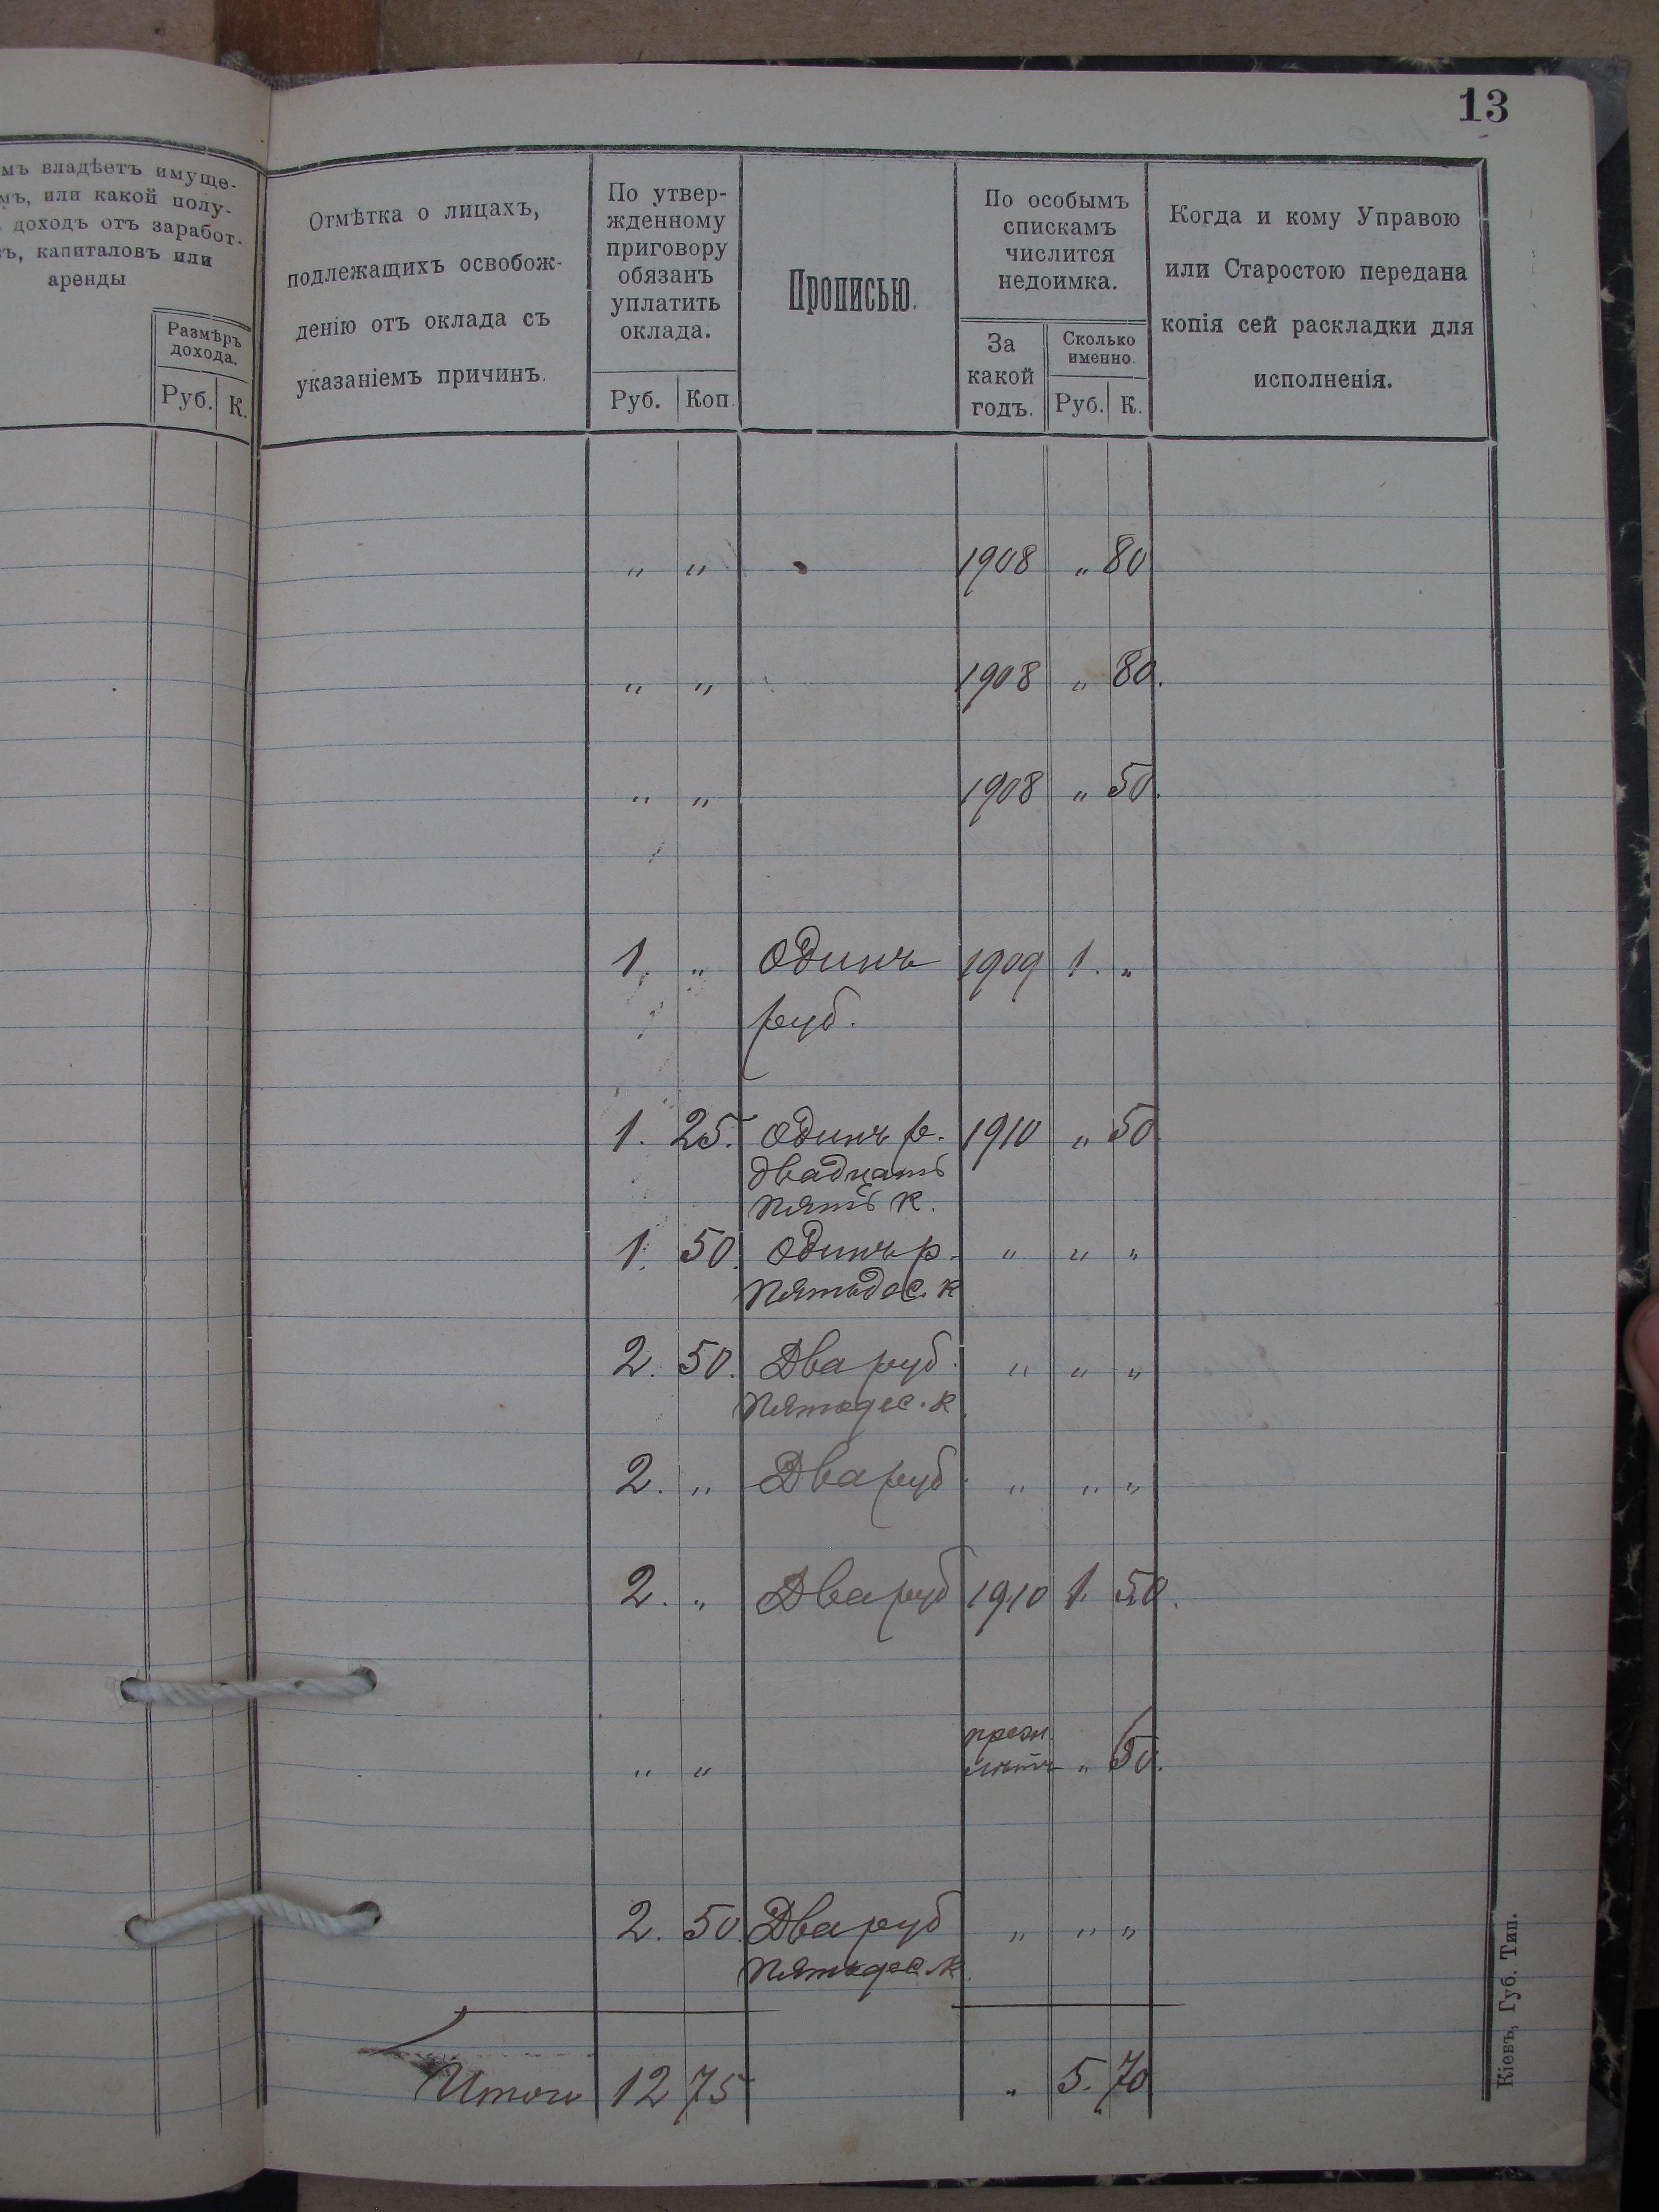 13
мъ владѣетъ имуще-
мъ, или какой полу-
доходъ отъ заработ-
ъ, капиталовъ или
аренды
Размѣръ
дохода.
Руб. К.
Отмѣтка о лицахъ,
подлежащихъ освобож-
денію отъ оклада съ
указаніемъ причинъ.
По утвер-
жденному
приговору
обязанъ
уплатить
оклада.
Руб. Коп.
Прописью.
По особымъ
спискамъ
числится
недоимка.
За
какой
годъ.
Сколько
именно.
Руб. К.
Когда и кому Управою
или Старостою передана
копія сей раскладки для
исполненія.
" " 1908 " 80
" " 1908 " 80.
" " 1908 " 50.
1. " Одинъ 1909 1. "
руб.
1. 25. Одинъ р. 1910 " 50
двадцать
пять к.
1. 50. Одинъ р. " " "
пятьдес. к
2. 50. Два руб. " " "
пятьдес. к
2. " Два руб " " "
2. " Два руб 1910 1. 50.
" " прежн.
лѣтъ " 50.
2. 50 Два руб " " "
пятьдес. к.
Итого 12 75 " 5. 70
Кіевъ, Губ. Тип.